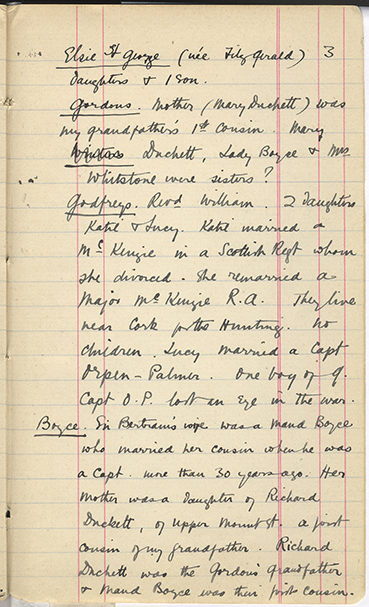 Elsie St George (née FitzGerald) 3
Daughters & 1 son.
Gordons. Mother (Mary Duckett) was
my grandfather's 1st Cousin. Mary
Duckett, Lady Boyce & Mrs
Whitstone were sisters?
Godfreys. Revd William. 2 Daughters
Katie & Lucy. Katie married a
Mc Kenzie in a Scottish Regt whom
she divorced. She remarried a
Major Mc Kenzie R.A. They live
near Cork for the Hunting. No
children. Lucy married a Capt
Orpen-Palmer. One boy of 9.
Capt O.P. lost an Eye in the war.
Boyce. Sir Bertram's wife was a Maud Boyce
who married her cousin when he was
a Capt. more than 30 years ago. Her
Mother was a Daughter of Richard
Duckett, of Upper Mount St. a first
cousin of my grandfather. Richard
Duckett was the Gordons' Grandfather
& Maud Boyce was their first cousin.